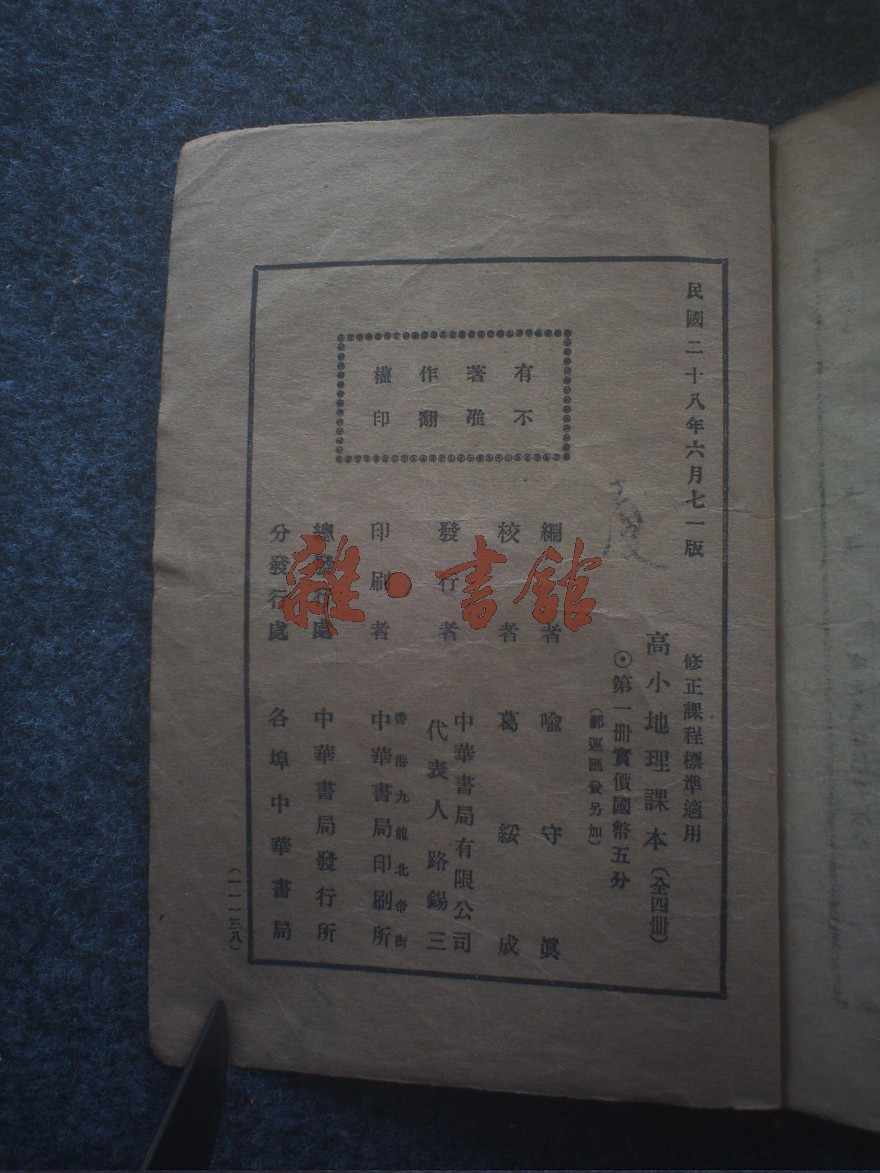 民國二十八年六月七一版
修正課程標準適用
高小地理課本（全四冊）
⊙第一冊實價國幣五分
（郵運匯費另加）
有著作權
不准翻印
編者 喩守眞
校者 葛綏成
發行者 中華書局有限公司
代表人路錫三
印刷者 香港九龍北帝街
中華書局印刷所
總發行處 中華書局發行所
分發行處 各埠中華書局
（一一一三八）
雜·書館